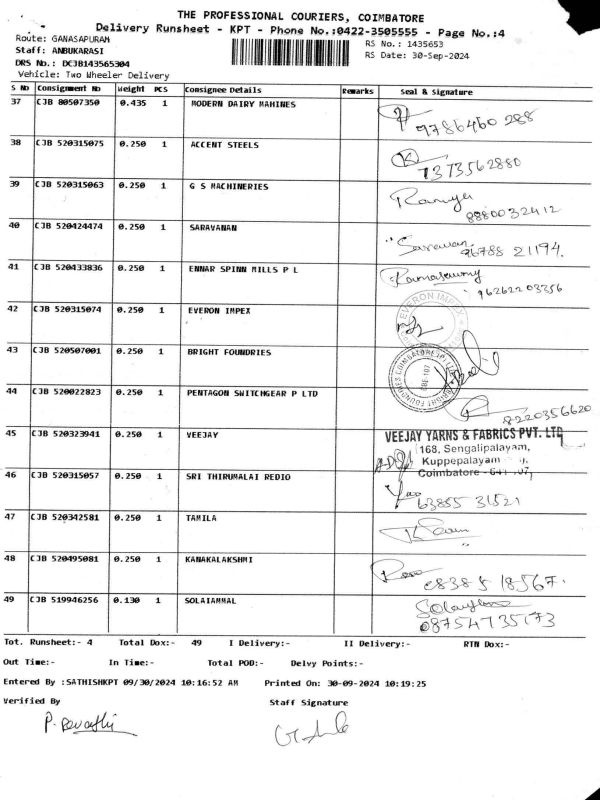 THE PROFESSIONAL COURIERS, COIMBATORE
Delivery Runsheet - KPT - Phone No.:0422-3505555 - Page No.:4
Route: GANASAPURAM RS No.: 1435653
Staff: ANBUKARASI RS Date: 30-Sep-2024
DRS No.: DCJB143565304
Vehicle: Two Wheeler Delivery
S No Consignment No Weight PCS Consignee Details Remarks Seal & Signature
37 CJB 80507350 0.435 1 MODERN DAIRY MAHINES
9786460 288
38 CJB 520315075 0.250 1 ACCENT STEELS
7373562880
39 CJB 520315063 0.250 1 G S MACHINERIES Ramya
8880032412
40 CJB 520424474 0.250 1 SARAVANAN Saravanan
96788 21194.
41 CJB 520433836 0.250 1 ENNAR SPINN MILLS P L Ramasamy
96262203356
42 CJB 520315074 0.250 1 EVERON IMPEX EVERON IMPEX
43 CJB 520507001 0.250 1 BRIGHT FOUNDRIES
44 CJB 520022823 0.250 1 PENTAGON SWITCHGEAR P LTD
8220356620
45 CJB 520323941 0.250 1 VEEJAY VEEJAY YARNS & FABRICS PVT. LTD
168, Sengalipalayam,
Kuppepalayam
Coimbatore - 641 107
46 CJB 520315057 0.250 1 SRI THIRUMALAI REDIO
63855 31521
47 CJB 520342581 0.250 1 TAMILA
48 CJB 520495081 0.250 1 KANAKALAKSHMI
49 CJB 519946256 0.130 1 SOLAIAMMAL
08754735173
Tot. Runsheet:- 4 Total Dox:- 49 I Delivery:- II Delivery:- RTN Dox:-
Out Time:- In Time:- Total POD:- Delvy Points:-
Entered By :SATHISHKPT 09/30/2024 10:16:52 AM Printed On: 30-09-2024 10:19:25
Verified By Staff Signature
P. Revathi